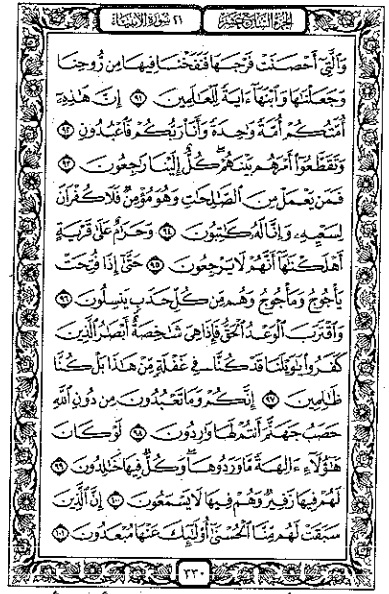 الجزء السابع عشر
٢١ سورة الأنبياء
وَٱلَّتِىٓ أَحْصَنَتْ فَرْجَهَا فَنَفَخْنَا فِيهَا مِن رُّوحِنَا
وَجَعَلْنَٰهَا وَٱبْنَهَآ ءَايَةً لِّلْعَٰلَمِينَ ٩١ إِنَّ هَٰذِهِۦٓ
أُمَّتُكُمْ أُمَّةً وَٰحِدَةً وَأَنَا۠ رَبُّكُمْ فَٱعْبُدُونِ ٩٢
وَتَقَطَّعُوٓا۟ أَمْرَهُم بَيْنَهُمْ كُلٌّ إِلَيْنَا رَٰجِعُونَ ٩٣
فَمَن يَعْمَلْ مِنَ ٱلصَّٰلِحَٰتِ وَهُوَ مُؤْمِنٌ فَلَا كُفْرَانَ
لِسَعْيِهِۦ وَإِنَّا لَهُۥ كَٰتِبُونَ ٩٤ وَحَرَٰمٌ عَلَىٰ قَرْيَةٍ
أَهْلَكْنَٰهَآ أَنَّهُمْ لَا يَرْجِعُونَ ٩٥ حَتَّىٰٓ إِذَا فُتِحَتْ
يَأْجُوجُ وَمَأْجُوجُ وَهُم مِّن كُلِّ حَدَبٍ يَنسِلُونَ ٩٦
وَٱقْتَرَبَ ٱلْوَعْدُ ٱلْحَقُّ فَإِذَا هِىَ شَٰخِصَةٌ أَبْصَٰرُ ٱلَّذِينَ
كَفَرُوا۟ يَٰوَيْلَنَا قَدْ كُنَّا فِى غَفْلَةٍ مِّنْ هَٰذَا بَلْ كُنَّا
ظَٰلِمِينَ ٩٧ إِنَّكُمْ وَمَا تَعْبُدُونَ مِن دُونِ ٱللَّهِ
حَصَبُ جَهَنَّمَ أَنتُمْ لَهَا وَٰرِدُونَ ٩٨ لَوْ كَانَ
هَٰٓؤُلَآءِ ءَالِهَةً مَّا وَرَدُوهَا وَكُلٌّ فِيهَا خَٰلِدُونَ ٩٩
لَهُمْ فِيهَا زَفِيرٌ وَهُمْ فِيهَا لَا يَسْمَعُونَ ١٠٠ إِنَّ ٱلَّذِينَ
سَبَقَتْ لَهُم مِّنَّا ٱلْحُسْنَىٰٓ أُو۟لَٰٓئِكَ عَنْهَا مُبْعَدُونَ ١٠١
٣٣٠